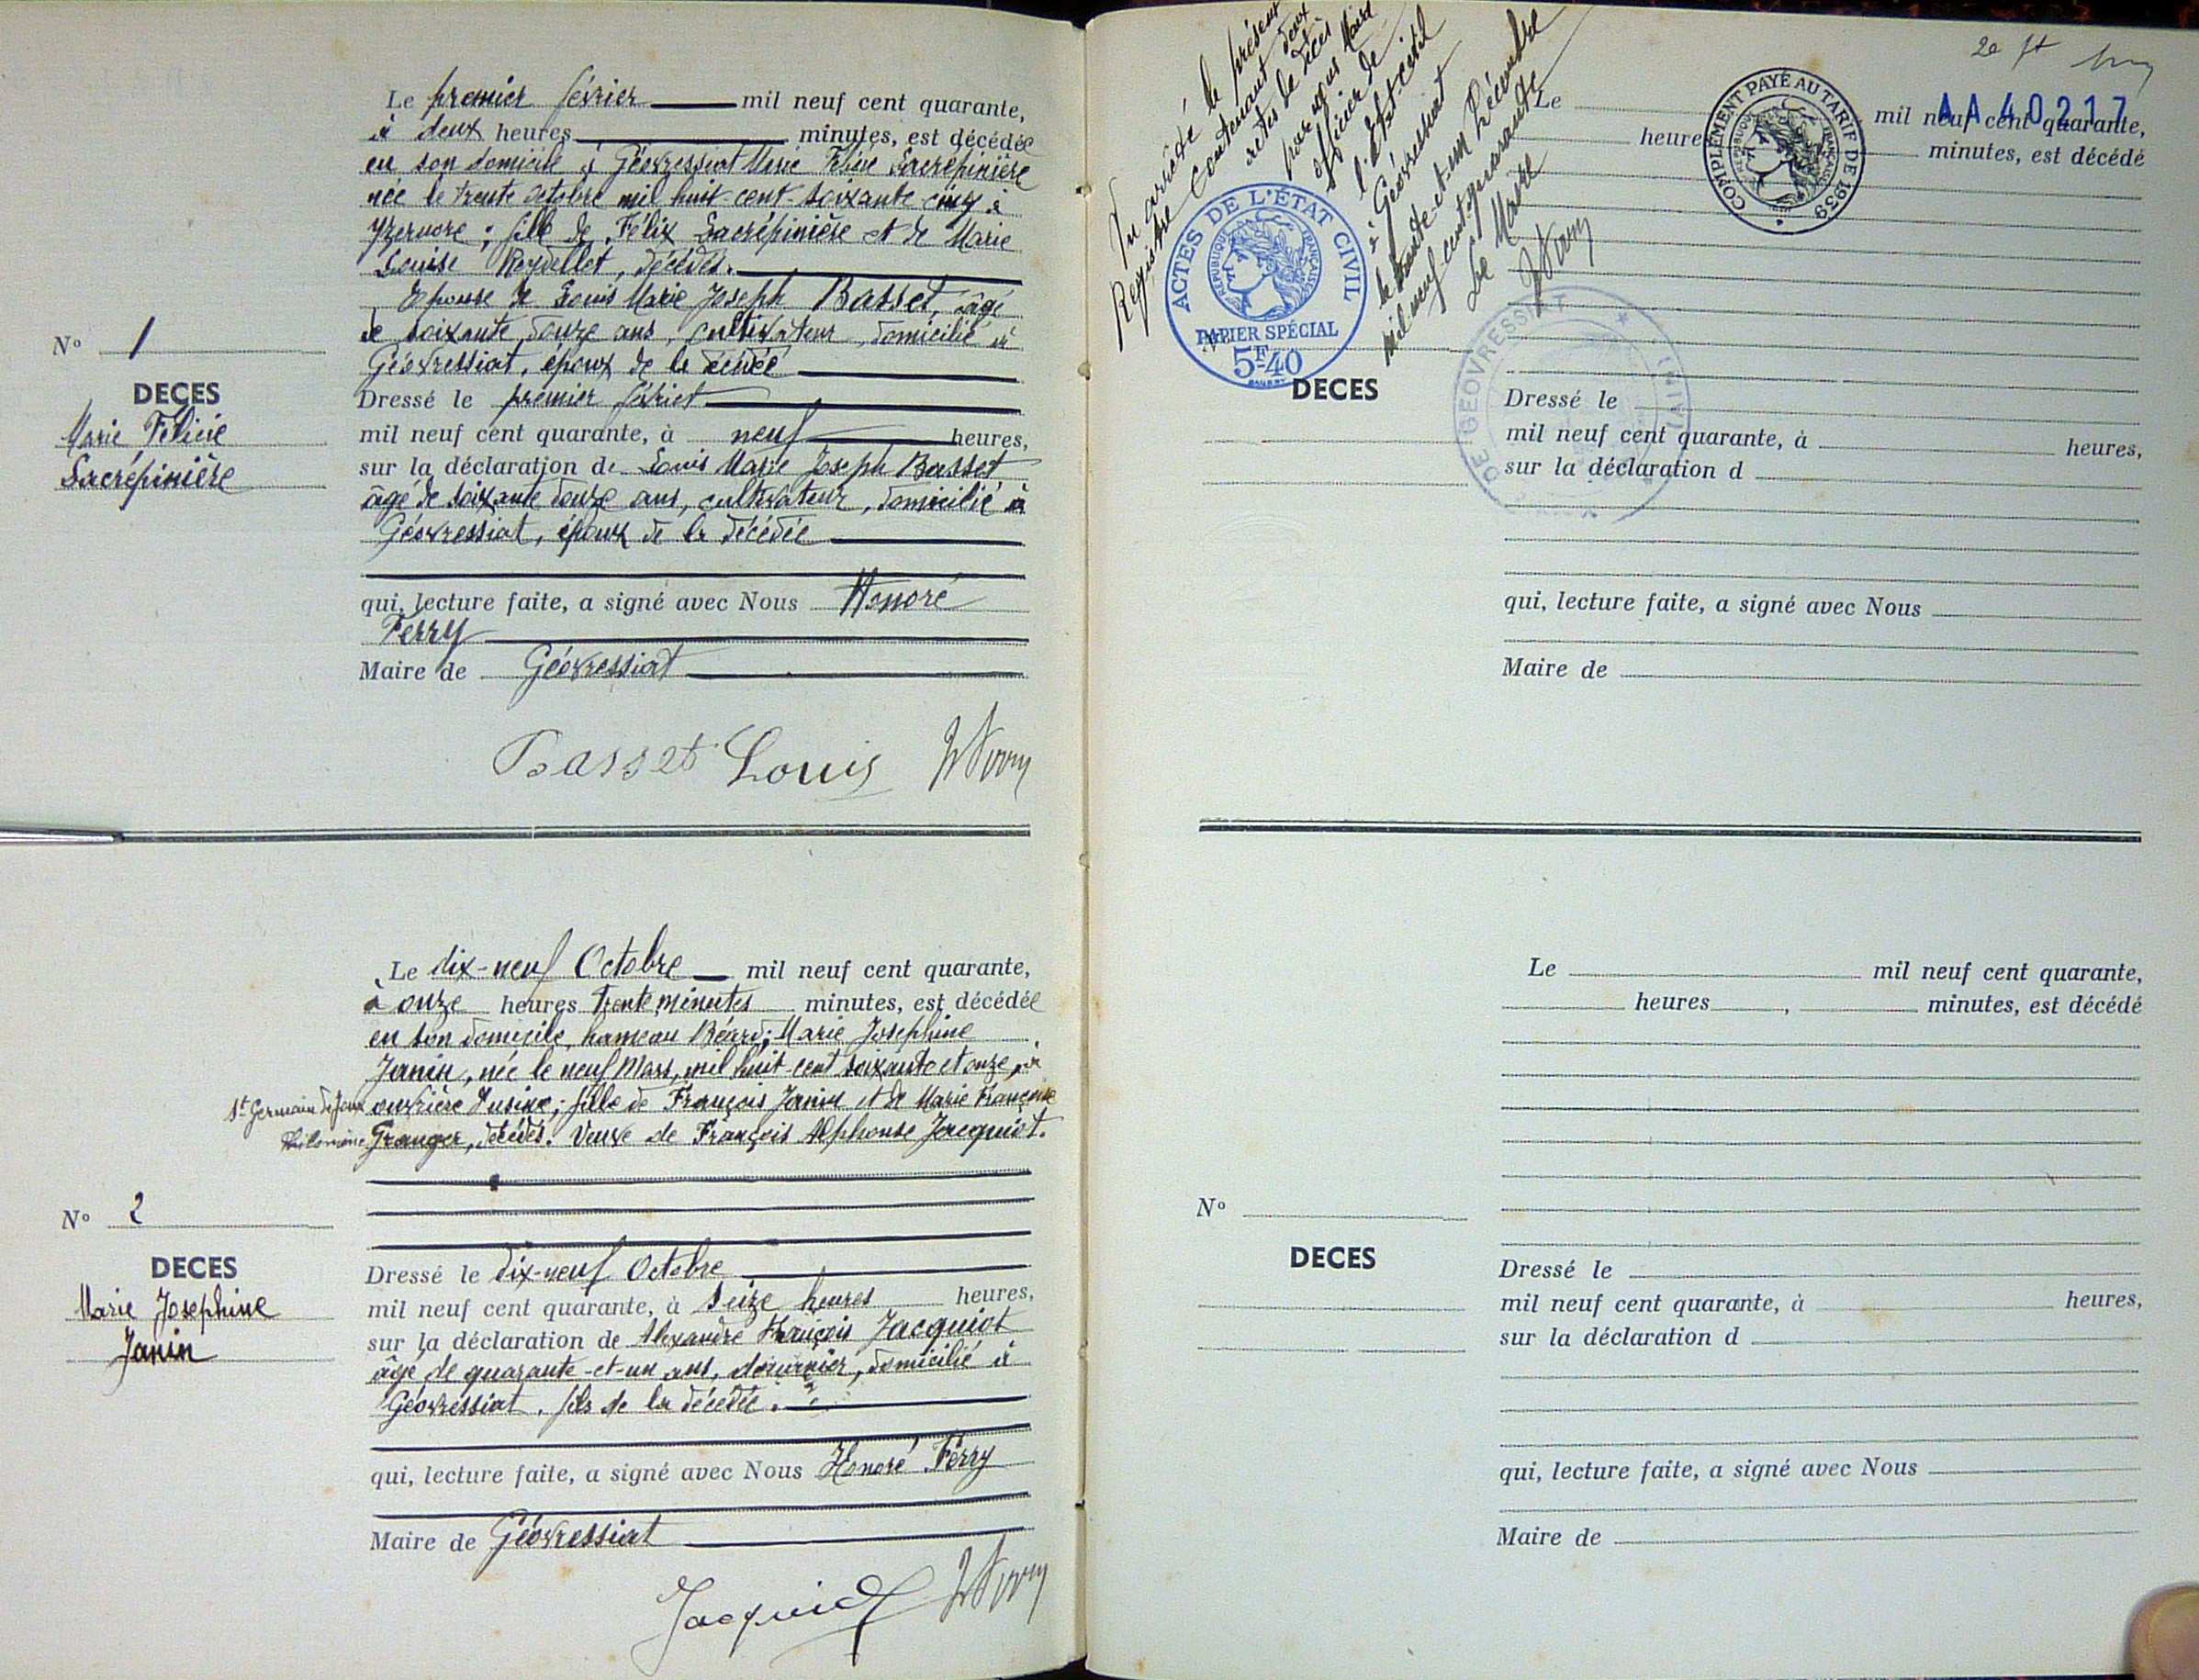 Le premier février mil neuf cent quarante,
à deux heures minutes, est décédée
en son domicile à Géovressiat Marie Félicie Sacrépinière
née le trente octobre mil huit-cent-soixante-cinq à
Yzernore ; fille de Félix Sacrépinière et de Marie
Louise Reydellet, décédés.
Epouse de Louis Marie Joseph Basset, âgé
de soixante douze ans, cultivateur, domicilié à
Géovressiat, époux de la décédée
N° 1
DECES
Marie Félicie
Sacrépinière
Dressé le premier février
mil neuf cent quarante, à neuf heures,
sur la déclaration de Louis Marie Joseph Basset
âgé de soixante douze ans, cultivateur, domicilié à
Géovressiat, époux de la décédée
qui, lecture faite, a signé avec Nous Honoré
Ferry
Maire de Géovressiat
Basset Louis
Le dix-neuf Octobre mil neuf cent quarante,
à onze heures trente minutes minutes, est décédée
en son domicile, hameau Béard ; Marie Josephine
Janin, née le neuf Mars, mil huit-cent soixante et onze, à
St Germain de Joux ouvrière d'usine ; fille de François Janin et de Marie Françoise
Philomène Granger, décédés. Veuve de François Alphonse Jacquiot.
N° 2
DECES
Marie Josephine
Janin
Dressé le dix-neuf Octobre
mil neuf cent quarante, à seize heures heures,
sur la déclaration de Alexandre François Jacquiot
âgé de quarante-et-un ans, domicilié à
Géovressiat, fils de la décédée.
qui, lecture faite, a signé avec Nous Honoré Ferry
Maire de Géovressiat
Jacquiot
Vu arrêté le présent
Registre contenant deux
actes de décès
par nous Maire
officier de
l'état-civil
à Géovressiat
le trente-et-un Décembre
mil neuf cent quarante
Le Maire
ACTES DE L'ÉTAT CIVIL
RÉPUBLIQUE FRANÇAISE
PAPIER SPÉCIAL
5F40
COMPLÉMENT PAYÉ AU TARIF DE 1939
RÉPUBLIQUE FRANÇAISE
AA 40217
DE GÉOVRESSIAT
Le mil neuf cent quarante,
heures minutes, est décédé
DECES
Dressé le
mil neuf cent quarante, à heures,
sur la déclaration d
qui, lecture faite, a signé avec Nous
Maire de
Le mil neuf cent quarante,
heures , minutes, est décédé
N°
DECES
Dressé le
mil neuf cent quarante, à heures,
sur la déclaration d
qui, lecture faite, a signé avec Nous
Maire de